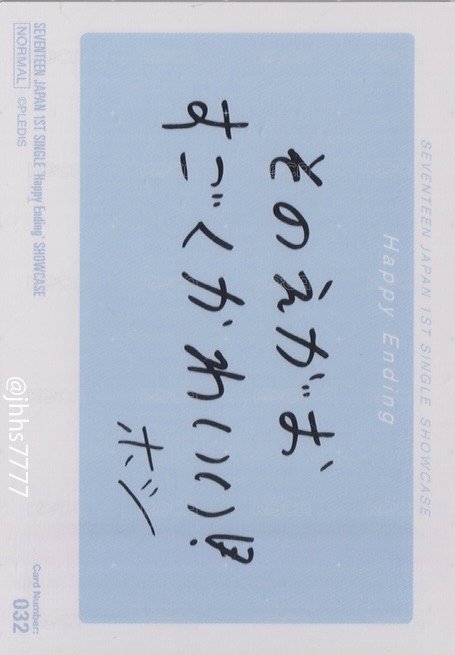 SEVENTEEN JAPAN 1ST SINGLE SHOWCASE
Happy Ending
そのえがお
すごくかわいい!
ホシ
SEVENTEEN JAPAN 1ST SINGLE 'Happy Ending' SHOWCASE
NORMAL ©PLEDIS
Card Number:
032
@jhhs7777